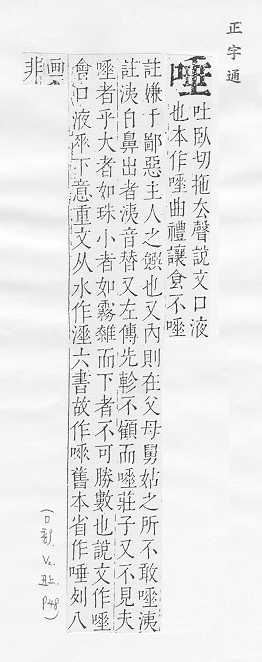 正字通
唾
吐臥切拖去聲說文口液
也本作唾曲禮讓食不唾
註嫌于鄙惡主人之饌也又內則在父母舅姑之所不敢唾洟
註洟自鼻出者洟音替又左傳先軫不顧而唾莊子又不見夫
唾者乎大者如珠小者如霧雜而下者不可勝數也說文作唾
會口液下意重文从水作涶六書故作舊本省作唾刻八
畫
非
(口部. V2. 丑上. P48)